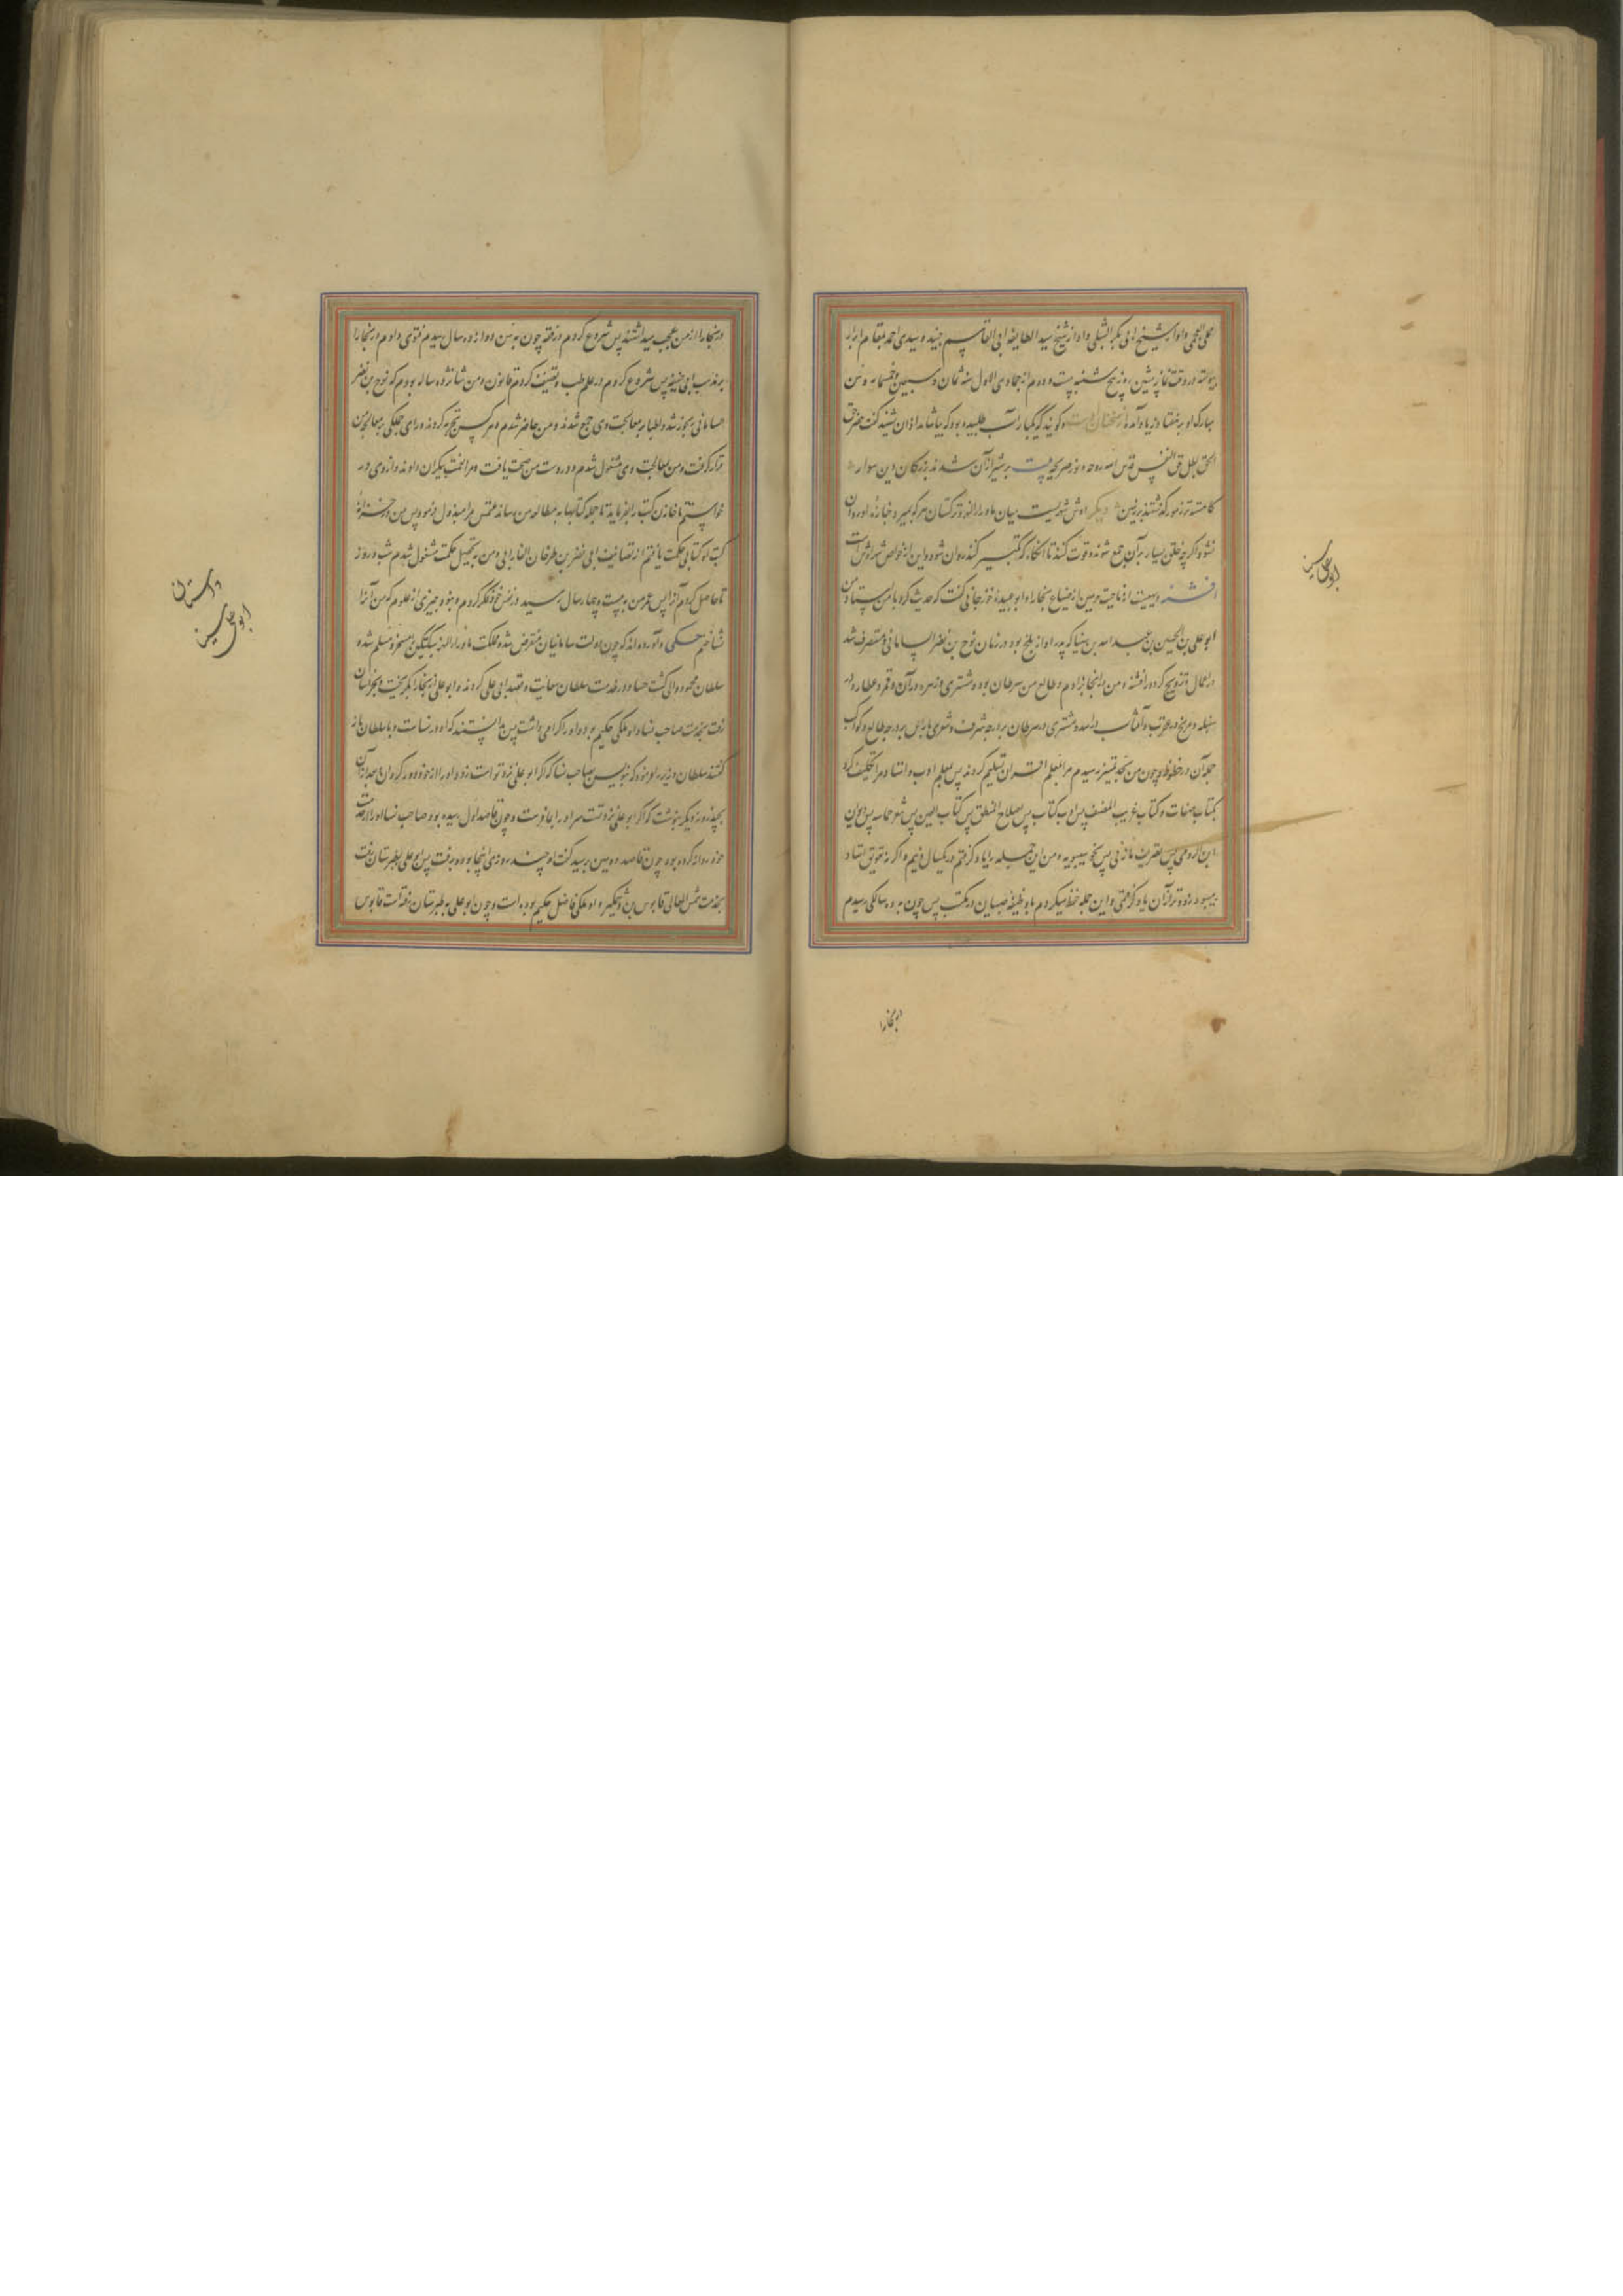 عجلی العجمی و او از شیخ ابی بکر الشبلی و او از شیخ سید الطایفه ابی القاسم جنید و سیدی احمد بمقام ابرار
پیوسته در وقت نماز پیشین روز پنج شنبه بیست و دوم از جمادی الاول سنه ثمان و سبعین و خمسمایه و سن
مبارک او بهفتاد زیاده آمد از سخنان اوست گویند که یکبار آب طلبیده بود که بیاشامد اذان شنید گفت حضر حق
الحق بطل حق النفس قدس الله روحه و نور ضریحه
کامسته ترزمور گذشتند بر زمین دیگر اوش شهریست میان ماوراء النهر و ترکستان هر که بمیرد جنازه او روان
نشود اگرچه خلقی بسیار بر آن جمع شوند و قوت کنند تا آنگاه که تکبیر کنند روان شود و این از خواص شهر اوش است
افشنه دیهیست از ناحیت رمیثن از ضیاع بخارا و ابو عبیده خوزجانی گفت که حدیث کرد با من استاد من
ابو علی بن الحسین بن عبد الله بن سینا که پدر او از بلخ بود در زمان نوح بن نصر السامانی متصرف شد
در اعمال و تزویج کرد در افشنه و من در اینجا بزادم و طالع من سرطان بود و مشتری و زهره در آن و قمر و عطارد در
سنبله و مریخ در عقرب و آفتاب در اسد و مشتری در سرطان بر درجه شرف و شعری با رأس بر درجه طالع و کواکب
جمله آن در حظوظ و چون من بحد تمییز رسیدم مرا بمعلم القرآن تسلیم کردند پس بمعلم ادب و استاد مرا تکلیف کرد
بکتاب صفات و کتاب غریب المصنف پس ادب کتاب پس اصلاح المنطق پس کتاب العین پس شعر حماسه پس دیوان
ابن الرومی پس تصریف مازنی پس نحو سیبویه و من این جمله را یاد گرفتم در یکسال و نیم و اگر نه تعویق استاد
میبود زودتر از آن یاد گرفتمی و این جمله حفظ میکردم با وظیفه صبیان در مکتب پس چون به ده سالگی رسیدم
در بخارا
ابو علی سینا
در بخارا از من عجب میداشتند پس شروع کردم در فقه چون به سن دوازده سال رسیدم فتوی دادم در بخارا
بر مذهب ابی حنیفه پس شروع کردم در علم طب و تصنیف کردم قانون و من شانزده ساله بودم که نوح بن نصر
سامانی رنجور شد و اطبا به معالجت وی جمع شدند و من حاضر شدم و هر کس تجربه کردند و رای جملگی بمعالجه من
قرار گرفت و من بمعالجت وی مشغول شدم و در دست من صحت یافت و مرا نعمت بیکران دادند و از وی در
خواستم تا خازن کتب را بفرماید تا جمله کتابها به مطالعه من رساند ملتمس مرا مبذول فرمود پس من در خزانه
کتب او کتابی حکمت یافتم از تصانیف ابی نصر بن طرخان الفارابی و من به تحصیل حکمت مشغول شدم شب و روز
تا حاصل کردم آنرا پس عمر من به بیست و چهار سال رسید در نفس خود فکر کردم و نبود چیزی از علوم که من آنرا
نشناختم حکمی و آورده اند که چون دولت سامانیان منقرض شد و مملکت ماوراء النهر سبکتکین را مسخر و مسلم شده
سلطان محمود والی گشت حساد در خدمت سلطان سعایت و قصد ابی علی کردند و ابو علی از بخارا بگریخت و بخراسان
رفت بخدمت صاحب نسا و او ملکی حکیم بود و او را گرامی داشت پس بدانستند که او در نساست و با سلطان باز
گفتند سلطان وزیر را فرمود که بنویس بصاحب نسا که اگر ابو علی نزد تو است زود او را از خود دور گردان بعد از آن
بچند روز دیگر بنوشت که اگر ابو علی نزد تست سر او را بما فرست و چون قاصد اول رسیده بود صاحب نسا او را از خدمت
خود روانه کرده بود چون قاصد دومین برسید گفت او چند روزی اینجا بود و برفت پس ابو علی بطبرستان رفت
بخدمت شمس المعالی قابوس بن وشمگیر و او ملکی فاضل حکیم بوده است و چون ابو علی به طبرستان رفته است قابوس
داستان
ابو علی سینا